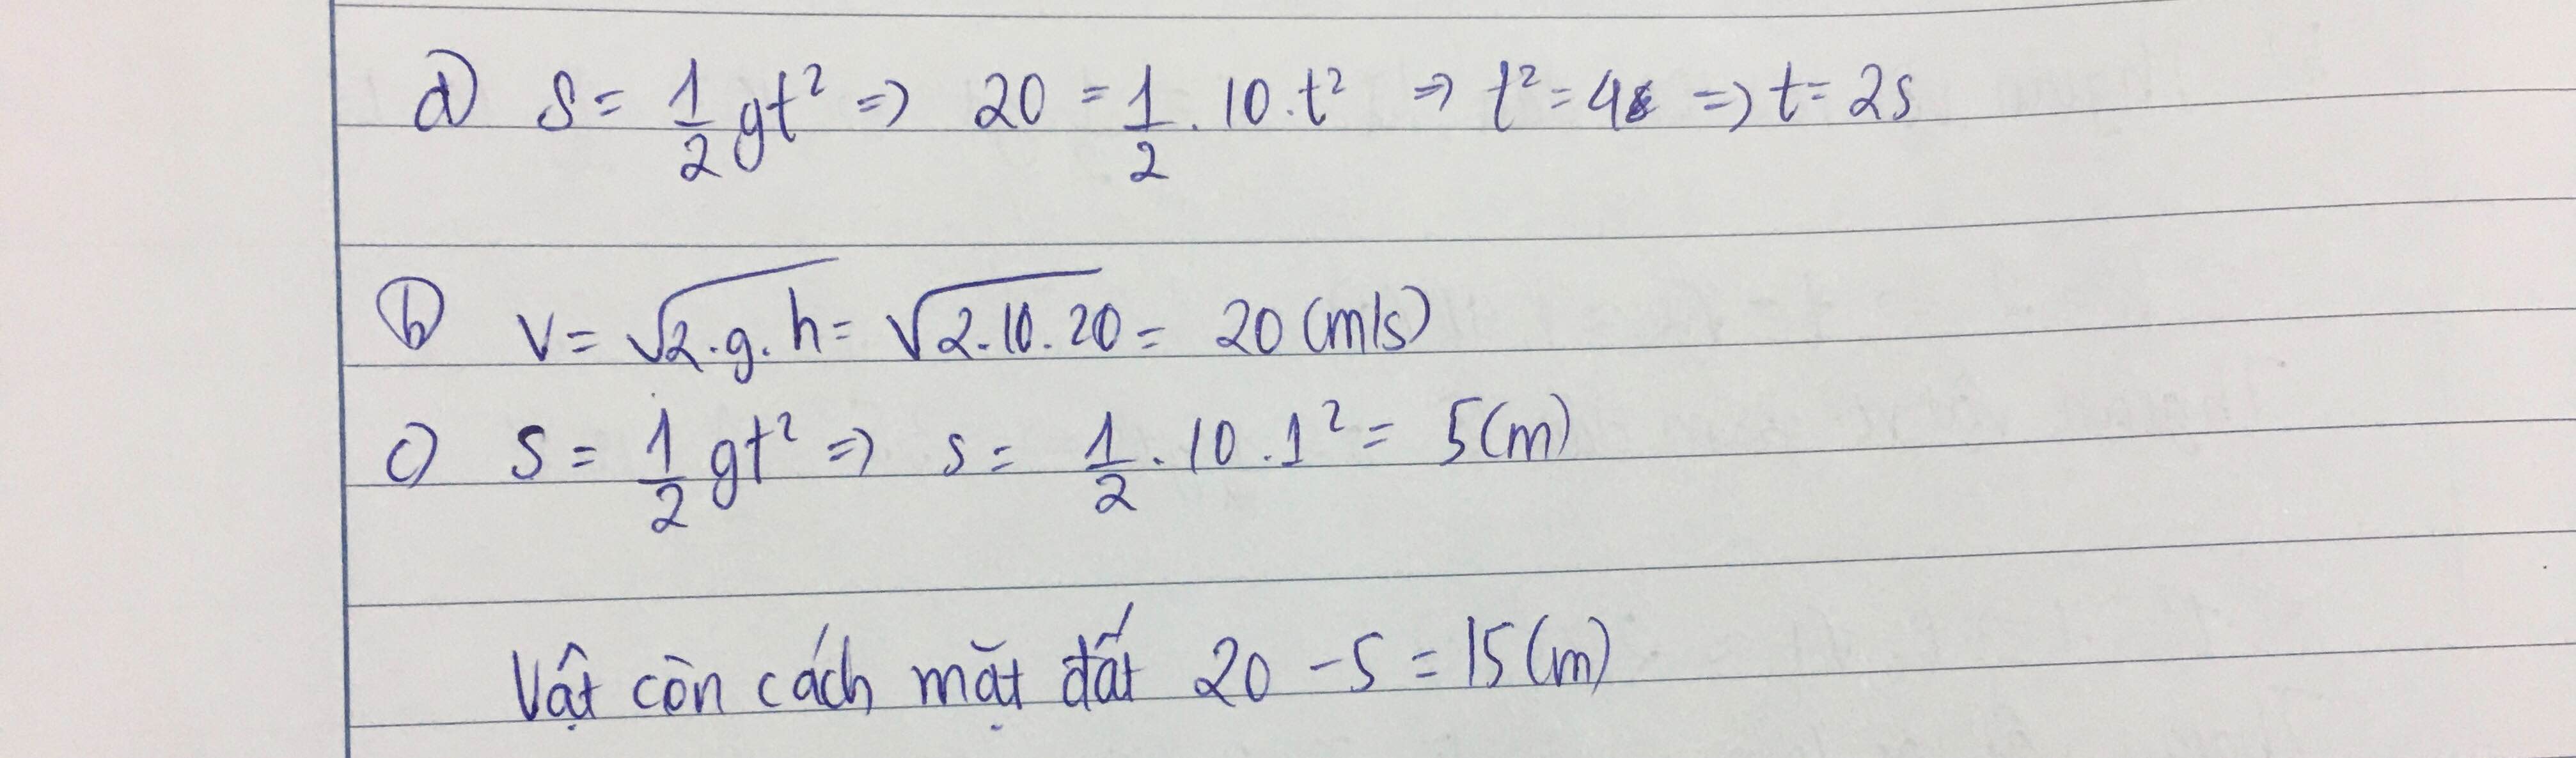 a) S = 1/2 gt² => 20 = 1/2 . 10.t² => t² = 4 => t = 2s
b) V = √2.g.h = √2.10.20 = 20 (m/s)
c) S = 1/2 gt² => s = 1/2 . 10 . 1² = 5(m)
Vật còn cách mặt đất 20 - 5 = 15(m)